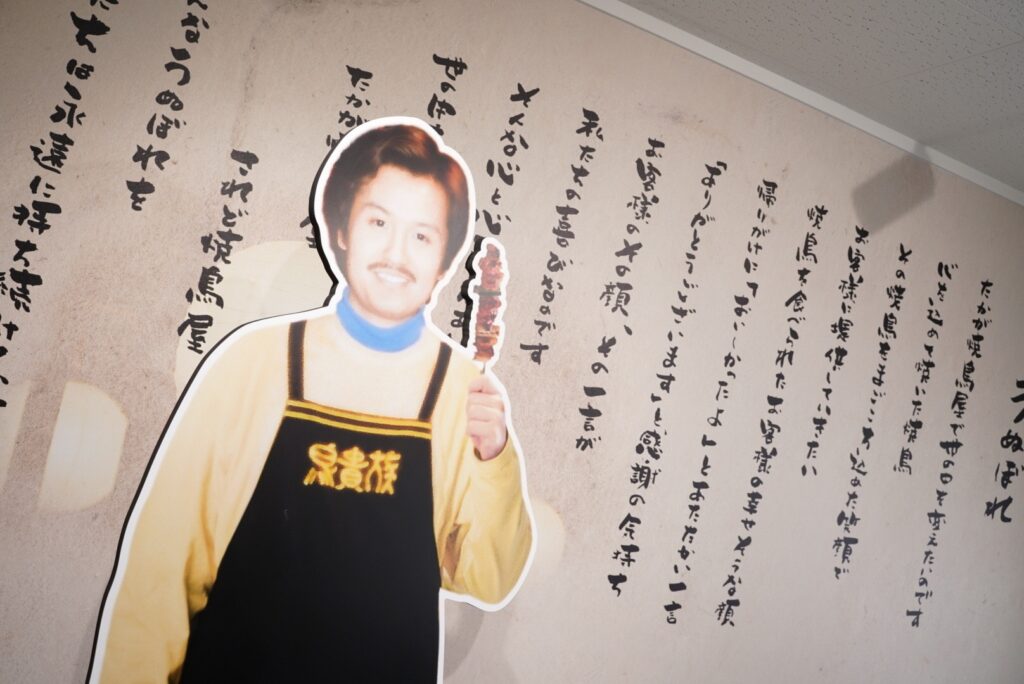 うぬぼれ
たかが焼鳥屋で世の中を変えたいのです
心を込めて焼いた焼鳥
その焼鳥をまごころ込めた笑顔で
お客様に提供していきたい
焼鳥を食べられたお客様の幸せそうな顔
帰りがけに「おいしかったよ」とあたたかい一言
「ありがとうございます」と感謝の気持ち
お客様のその顔、その一言が
私たちの喜びなのです
そんな心と心
世の中
たかが
されど焼鳥屋
んなうぬぼれを
たちは永遠に持ち続け
鳥貴族